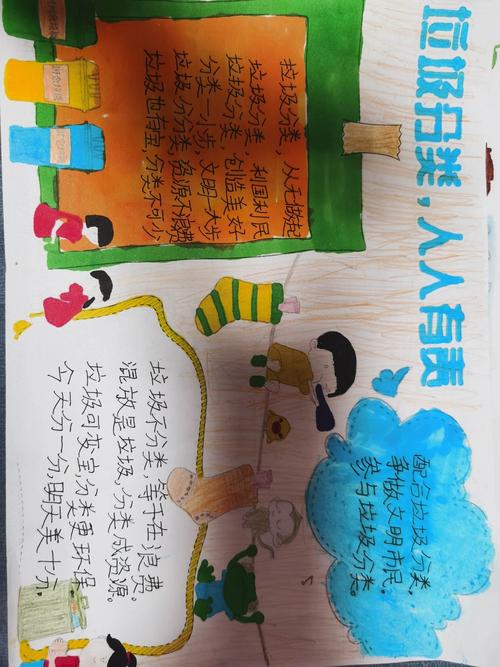 垃圾分类，人人有责
垃圾分类，从我做起
垃圾分类 利国利民
垃圾分类，创造美好
分类一小步 文明一大步
垃圾分分类 资源不浪费
垃圾也有宝，分类不可少
配合垃圾分类，
争做文明市民。
参与垃圾分类。
垃圾不分类，等于在浪费。
混放是垃圾，分类成资源。
垃圾可变宝，分类更环保。
今天分一分，明天美十分。